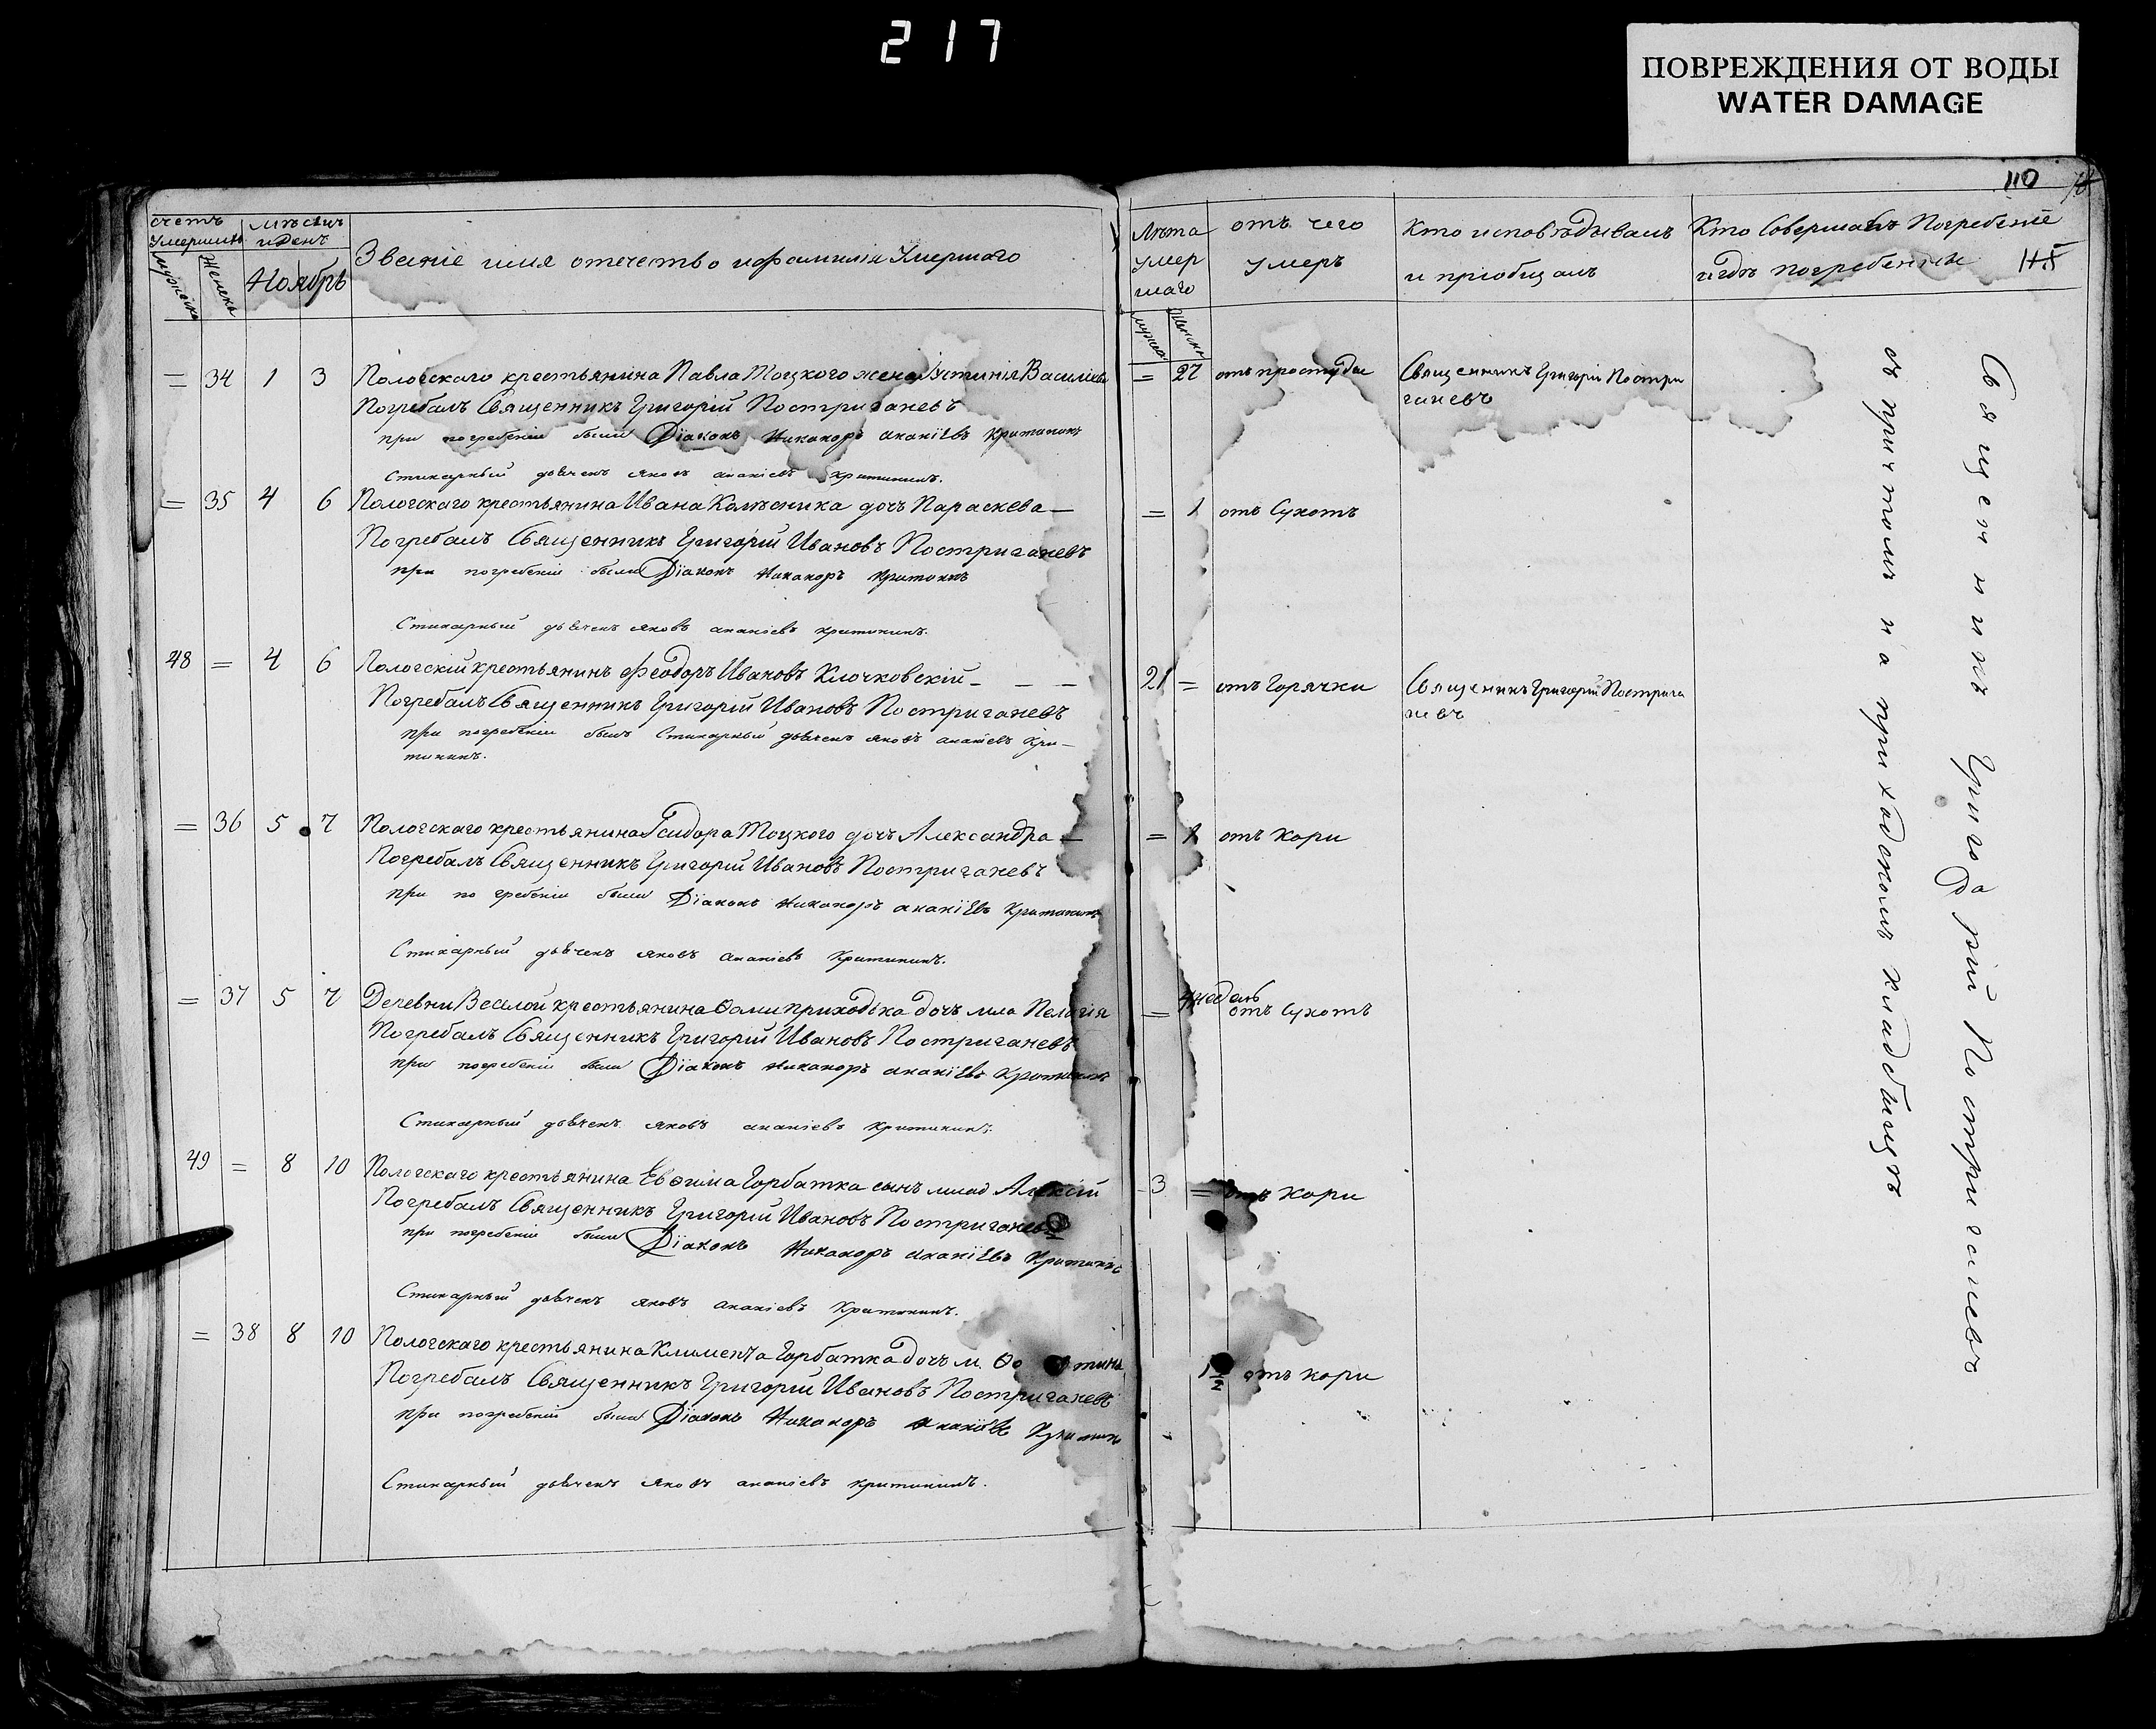 217
ПОВРЕЖДЕНИЯ ОТ ВОДЫ
WATER DAMAGE
110
115
счетъ умершихъ
мужеска
женска
мѣсяцъ и день
Ноябрь
Званіе имя отечество и фамилія Умершаго
Лѣта умершаго
мужеска
женска
отъ чего умеръ
Кто исповѣдывалъ и пріобщалъ
Кто Совершалъ Погребеніе и гдѣ погребены
= 34 1 3 Пологскаго крестьянина Павла Тоцкого жена Іустинія Василіева = 27 отъ простуды Священникъ Григорій Постри
ганевъ
Погребалъ Священникъ Григорій Постриганевъ
при погребеніи были Діаконъ Никаноръ Ананіевъ Критининъ
Стихарный дьячекъ Яковъ Ананіевъ Критининъ.
= 35 4 6 Пологскаго крестьянина Ивана Колѣсника дочь Параскева — = 1 отъ Сухотъ
Погребалъ Священникъ Григорій Ивановъ Постриганевъ
при погребеніи были Діаконъ Никаноръ Критининъ
Стихарный дьячекъ Яковъ Ананіевъ Критининъ.
48 = 4 6 Пологскій крестьянинъ Феодоръ Ивановъ Клочковскій — — — 21 = отъ Горячки Священникъ Григорій Пострига
невъ
Погребалъ Священникъ Григорій Ивановъ Постриганевъ
при погребеніи былъ Стихарный дьячекъ Яковъ Ананіевъ Кри-
тининъ.
= 36 5 7 Пологскаго крестьянина Ісидора Тоцкого дочь Александра — = 1 отъ кори
Погребалъ Священникъ Григорій Ивановъ Постриганевъ
при погребеніи были Діаконъ Никаноръ Ананіевъ Критининъ
Стихарный дьячекъ Яковъ Ананіевъ Критининъ.
= 37 5 7 Деревни Веселой крестьянина Ѳомы Приходька дочь мла Пелагія = 4 недель отъ Сухотъ
Погребалъ Священникъ Григорій Ивановъ Постриганевъ
при погребеніи были Діаконъ Никаноръ Ананіевъ Критининъ
Стихарный дьячекъ Яковъ Ананіевъ Критининъ.
49 = 8 10 Пологскаго крестьянина Евѳима Горбатка сынъ млад Алексій 3 = отъ кори
Погребалъ Священникъ Григорій Ивановъ Постриганевъ
при погребеніи были Діаконъ Никаноръ Ананіевъ Критининъ
Стихарный дьячекъ Яковъ Ананіевъ Критининъ.
= 38 8 10 Пологскаго крестьянина Климента Горбатка дочь м. 1½ отъ кори
Погребалъ Священникъ Григорій Ивановъ Постриганевъ
при погребеніи были Діаконъ Никаноръ Ананіевъ
Стихарный дьячекъ Яковъ Ананіевъ Критининъ.
Священникъ Григорій Постриганевъ
съ причтомъ на приходскомъ кладбищѣ